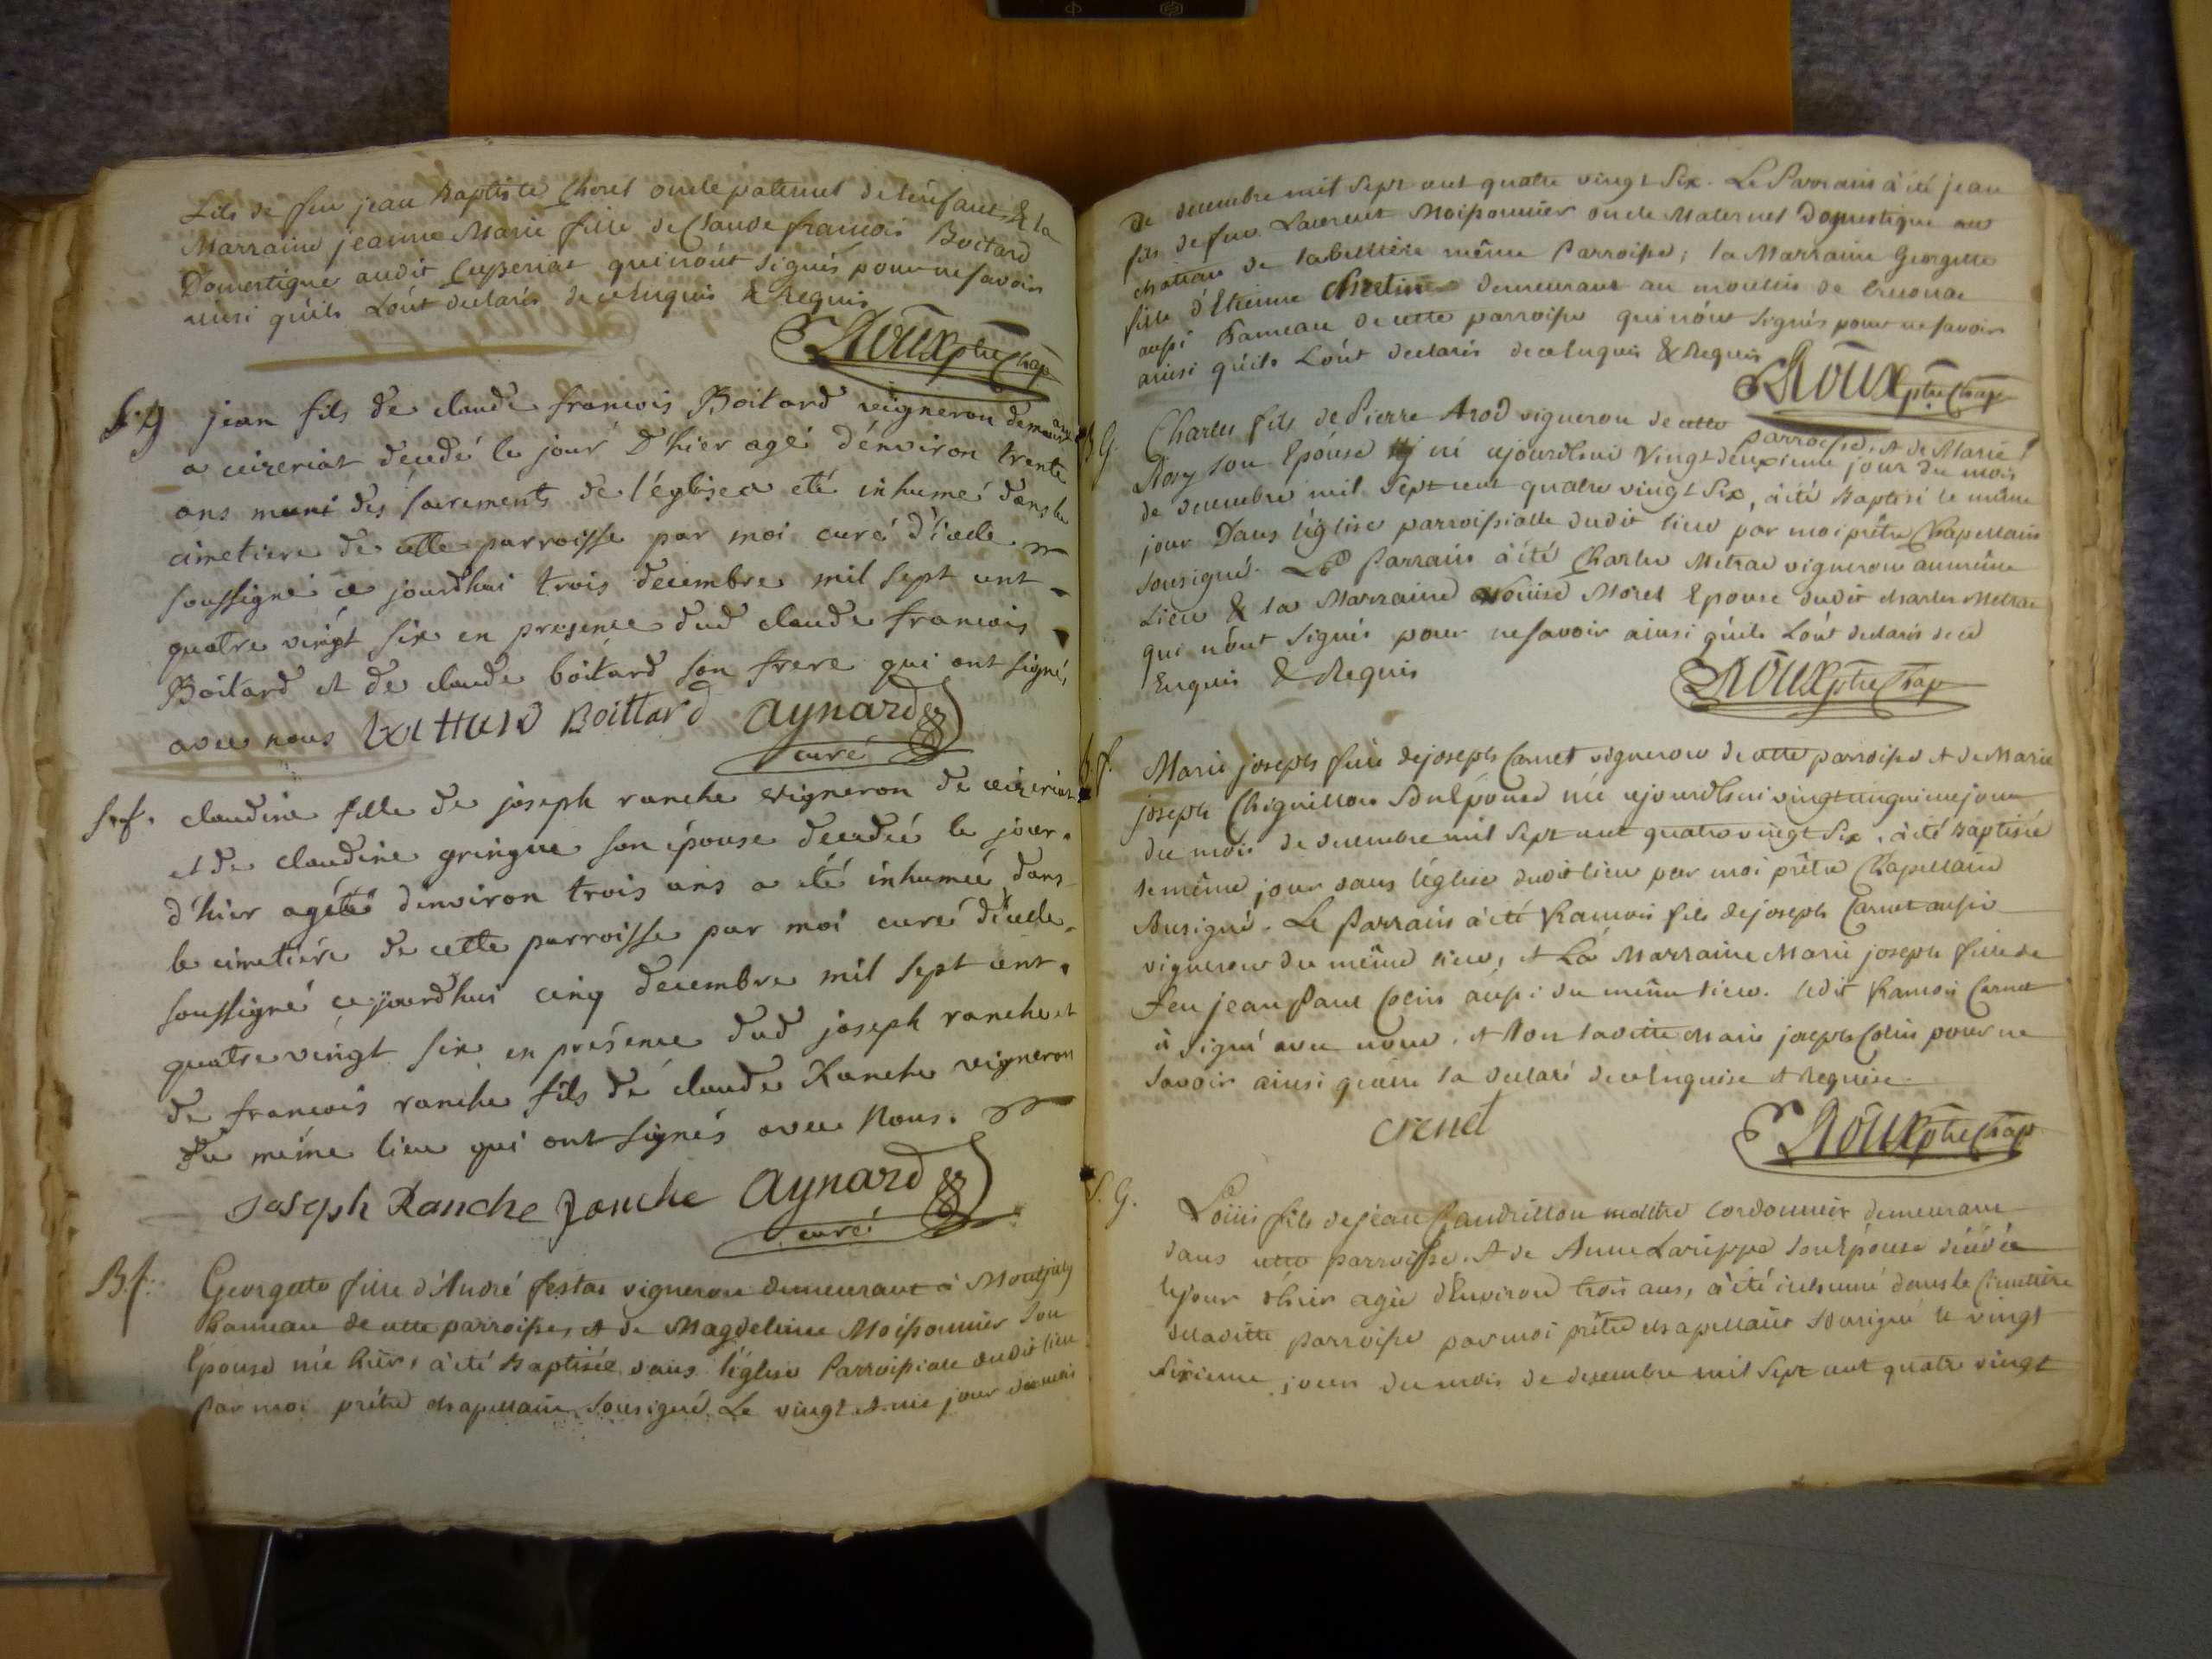 fils de feu jean Baptiste Choret oncle paternel de l'enfant, & la
Marraine jeanne Marie fille de Claude francois Boitard
Domestique audit Cuiseriat qui n'ont signés pour ne savoir
ainsi qu'ils L'ont declarés de ce Enquis & Requis
Roux ptre Chap
S. g
jean fils de claude francois Boitard vigneron demeurant
a ceizeriat décédé le jour D'hier agé d'énviron trente
ans muni des sacrements de l'église a eté inhumé dans le
cimetiere de cette parroisse par moi curé d'icelle
soussigné ce jourdhui trois decembre mil sept cent
quatre vingt six en presence dud claude francois
Boitard et de claude boitard son frere qui ont signé,
avec nous Boittard Aynard
curé
S. f.
claudine fille de joseph ranche vigneron de ceizeriat
et de claudine gringue son épouse decedée le jour
d'hier agée d'environ trois ans a été inhumée dans
le cimetiére de cette parroisse par moi curé d'icelle
soussigné ce jourdhui cinq decembre mil sept cent
quatre vingt six en présence dud joseph ranche et
de francois ranche fils de claude Ranche vigneron
du même lieu qui ont signés avec Nous.
Joseph Ranche Ranche Aynard
curé
B. f.
Georgette fille d'André festas vigneron demeurant à Montjuly
hameau de cette parroisse, et de Magdeleine Moissonnier son
Epouse née hier, à été Baptisée dans l'église Parroissiale dudit lieu
Par moi prêtre chapellain, sousigné, Le vingt et unie jour du mois
De decembre mil sept cent quatre vingt Six. Le Parrain à été jean
fils de feu Laurent Moissonnier oncle Maternel Domestique au
chateau de labilliere même Parroisse; la Marraine Georgette
fille d'Etienne demeurant au moulin de
aussi hameau de cette parroisse qui n'ont signés pour ne savoir
ainsi qu'ils L'ont declarés de ce Enquis & Requis
Roux ptre Chap
B. G.
Charles fils de Pierre Arod vigneron de cette parroisse, et de Marie
Rosy son Epouse né ajourdhui Vingt deuxieme jour du mois
de decembre mil Sept cent quatre vingt Six, à été Baptisé le même
jour Dans l'église parroissialle dudit lieu par moi prêtre Chapellain
sousigné. Le Parrain à été Charles Metras vigneron au même
Lieu & la Marraine Louise Morel Epouse dudit charles Metras
qui n'ont signés pour ne savoir ainsi qu'ils L'ont declarés de ce
Enquis & Requis
Roux ptre Chap
B. f.
Marie joseph fille de joseph Carnet vigneron de cette parroisse et de Marie
joseph Chiguillon son Epouse née ajourdhui jour
du mois de decembre mil sept cent quatre vingt Six, à été Baptisée
le même jour dans l'église dudit lieu par moi prêtre Chapellain
Sousigné. Le Parrain à été francois fils de joseph Carnet aussi
vigneron du même lieu, et La Marraine Marie joseph fille de
Feu jean Paul Colin aussi du même lieu. ledit francois Carnet
à signé avec nous, et Non ladite Marie joseph Colin pour ne
savoir ainsi qu'elle la declaré de ce Enquise et Requise
crenet
Roux ptre Chap
S. G.
Loüis fils de jean Gaudrillon maître cordonnier demeurant
dans cette parroisse, et de Anne Larippe son Epouse décédée
le jour d'hier agée d'Environ trois ans, à été inhumé dans le Cimetière
de ladite parroisse par moi prêtre chapellain sousigné le vingt
sixieme jour du mois de decembre mil Sept cent quatre vingt